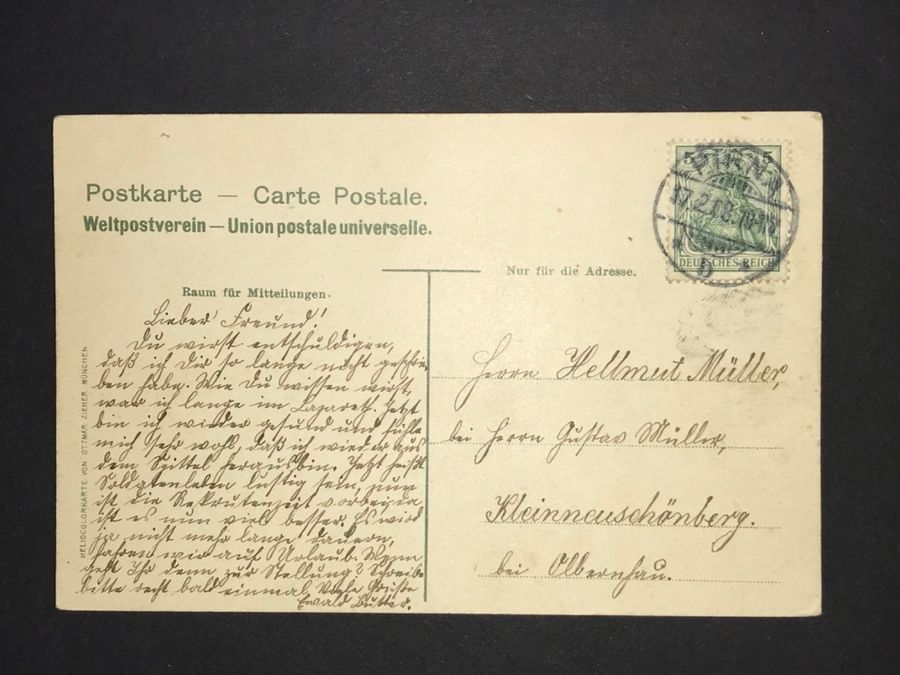 Postkarte — Carte Postale.
Weltpostverein — Union postale universelle.
Nur für die Adresse.
Raum für Mitteilungen.
5 5
PIRNA
DEUTSCHES REICH
HELIOCOLORKARTE VON OTTMAR ZIEHER, MÜNCHEN
Lieber Freund!
Du wirst entschuldigen,
daß ich dir so lange nicht geschrie-
ben habe. Wie Du wissen wirst,
war ich lange im Lazareth. Jetzt
bin ich wieder gesund und fühle
mich sehr wohl, daß ich wieder aus
dem Spittel heraus bin. Jetzt heißt
Soldatenleben lustig sein, nun
ist die Rekrutenzeit vorbei, da
ist es nun viel besser. Es wird
ja nicht mehr lange dauern,
fahren wir auf Urlaub. Wann
geht Ihr denn zur Stellung? Schreibe
bitte recht bald einmal. Viele Grüße
Ewald Butter.
Herrn Hellmut Müller,
bei Herrn Gustav Müller,
Kleinneuschönberg.
bei Olbernhau.